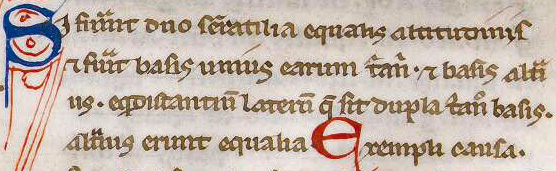 Si fuerint duo serratilia equalis altitudinis
⁊ fuerit basis unius earum trian̄. ⁊ basis alteri
us. eqdistantiū laterū q̄ sit dupla trian̄ basis.
alterius erunt equalia Exempli causa.